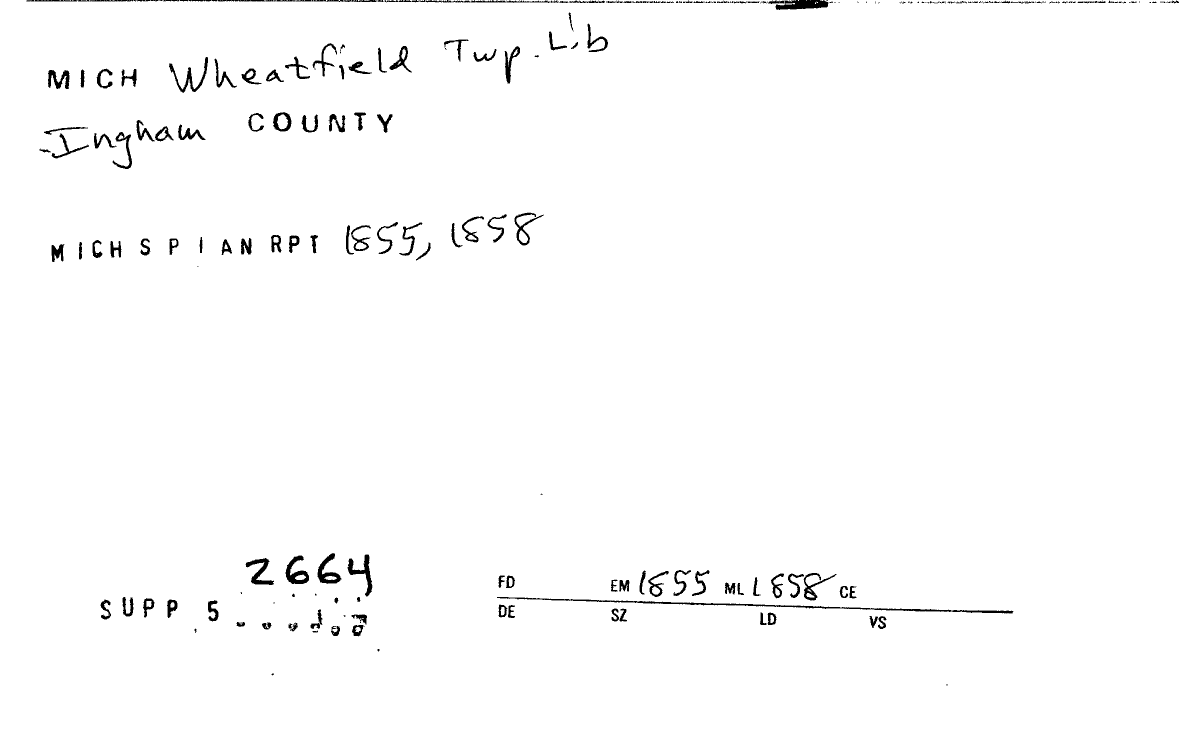 MICH Wheatfield Twp. Lib
Ingham COUNTY
MICH S P I AN RPT 1855, 1858
2664
SUPP 5
FD EM 1855 ML 1858 CE
DE SZ LD VS